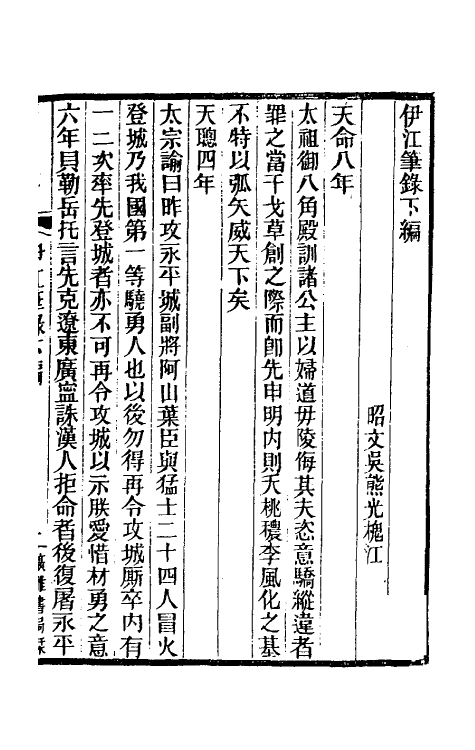 伊江筆錄下編
昭文吳熊光槐江
天命八年
太祖御八角殿訓諸公主以婦道毋陵侮其夫恣意驕縱違者
罪之當干戈草創之際而卽先申明内則夭桃穠李風化之基
不特以弧矢威天下矣
天聰四年
太宗諭曰昨攻永平城副將阿山葉臣與猛士二十四人冒火
登城乃我國第一等驍勇人也以後勿得再令攻城厮卒内有
一二次率先登城者亦不可再令攻城以示朕愛惜材勇之意
六年貝勒岳托言先克遼東廣寧誅漢人拒命者後復屠永平